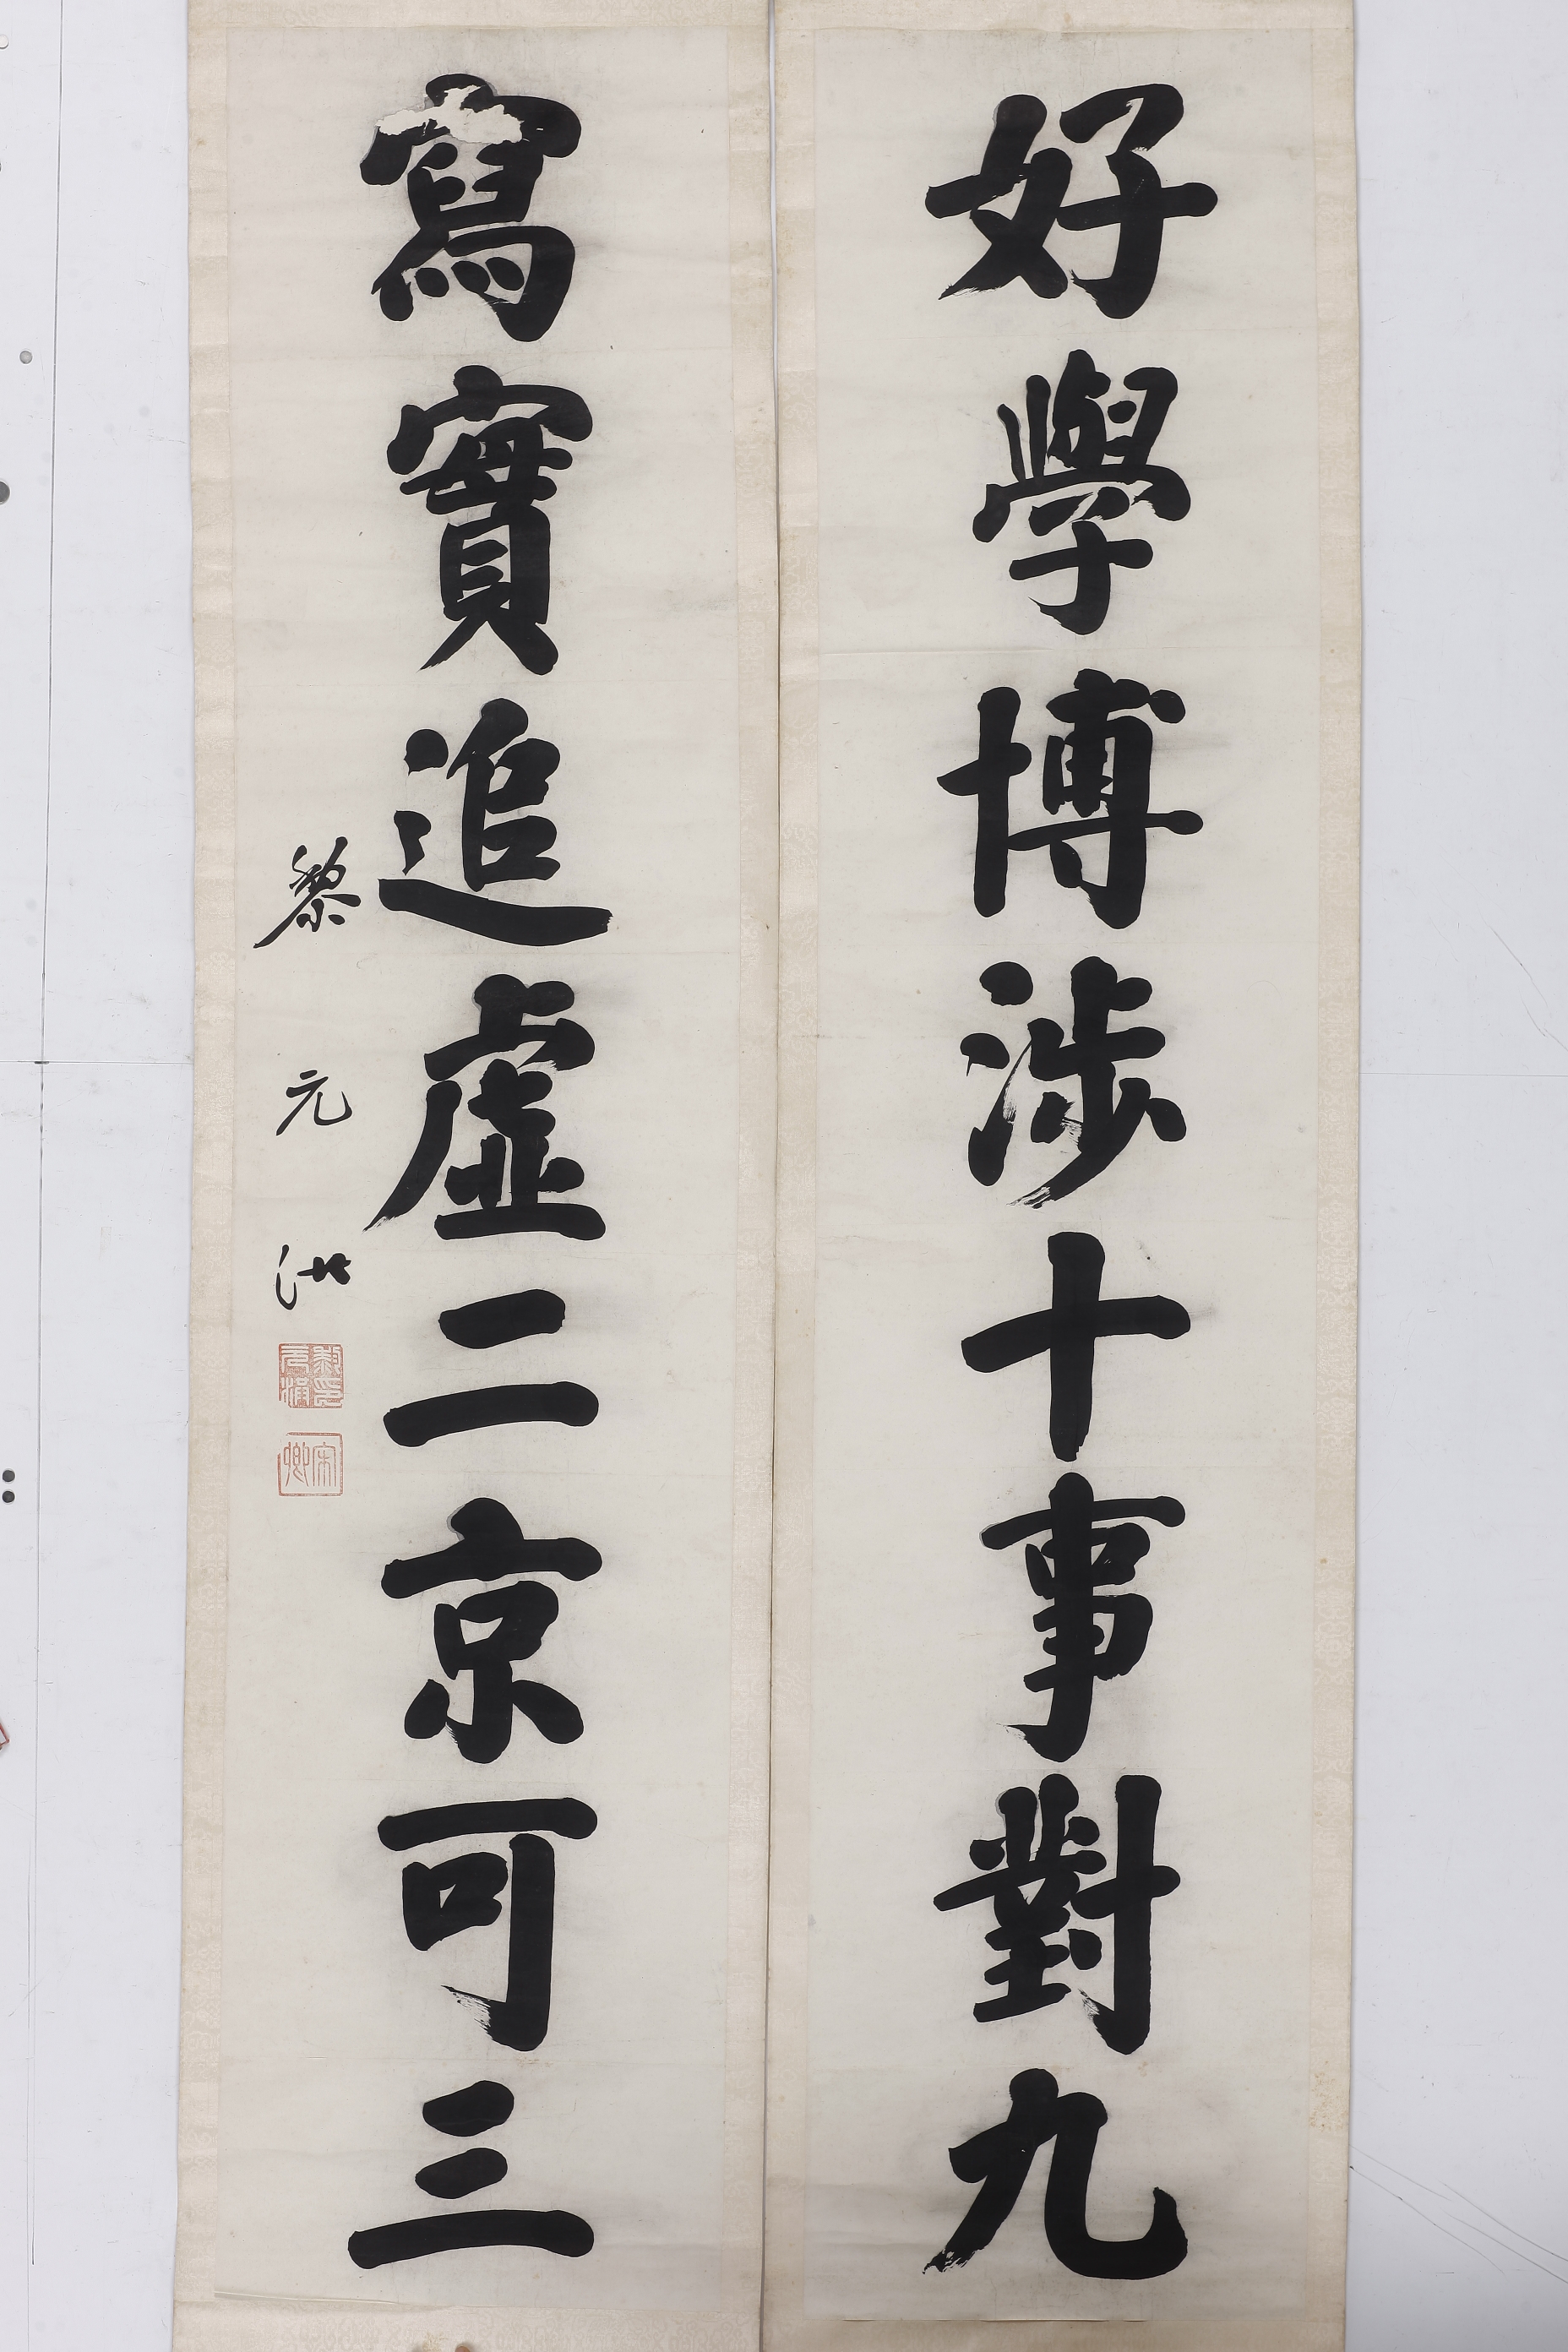 好學博涉十事對九
寫實追虛二京可三
黎元洪
黎元洪印
宋卿